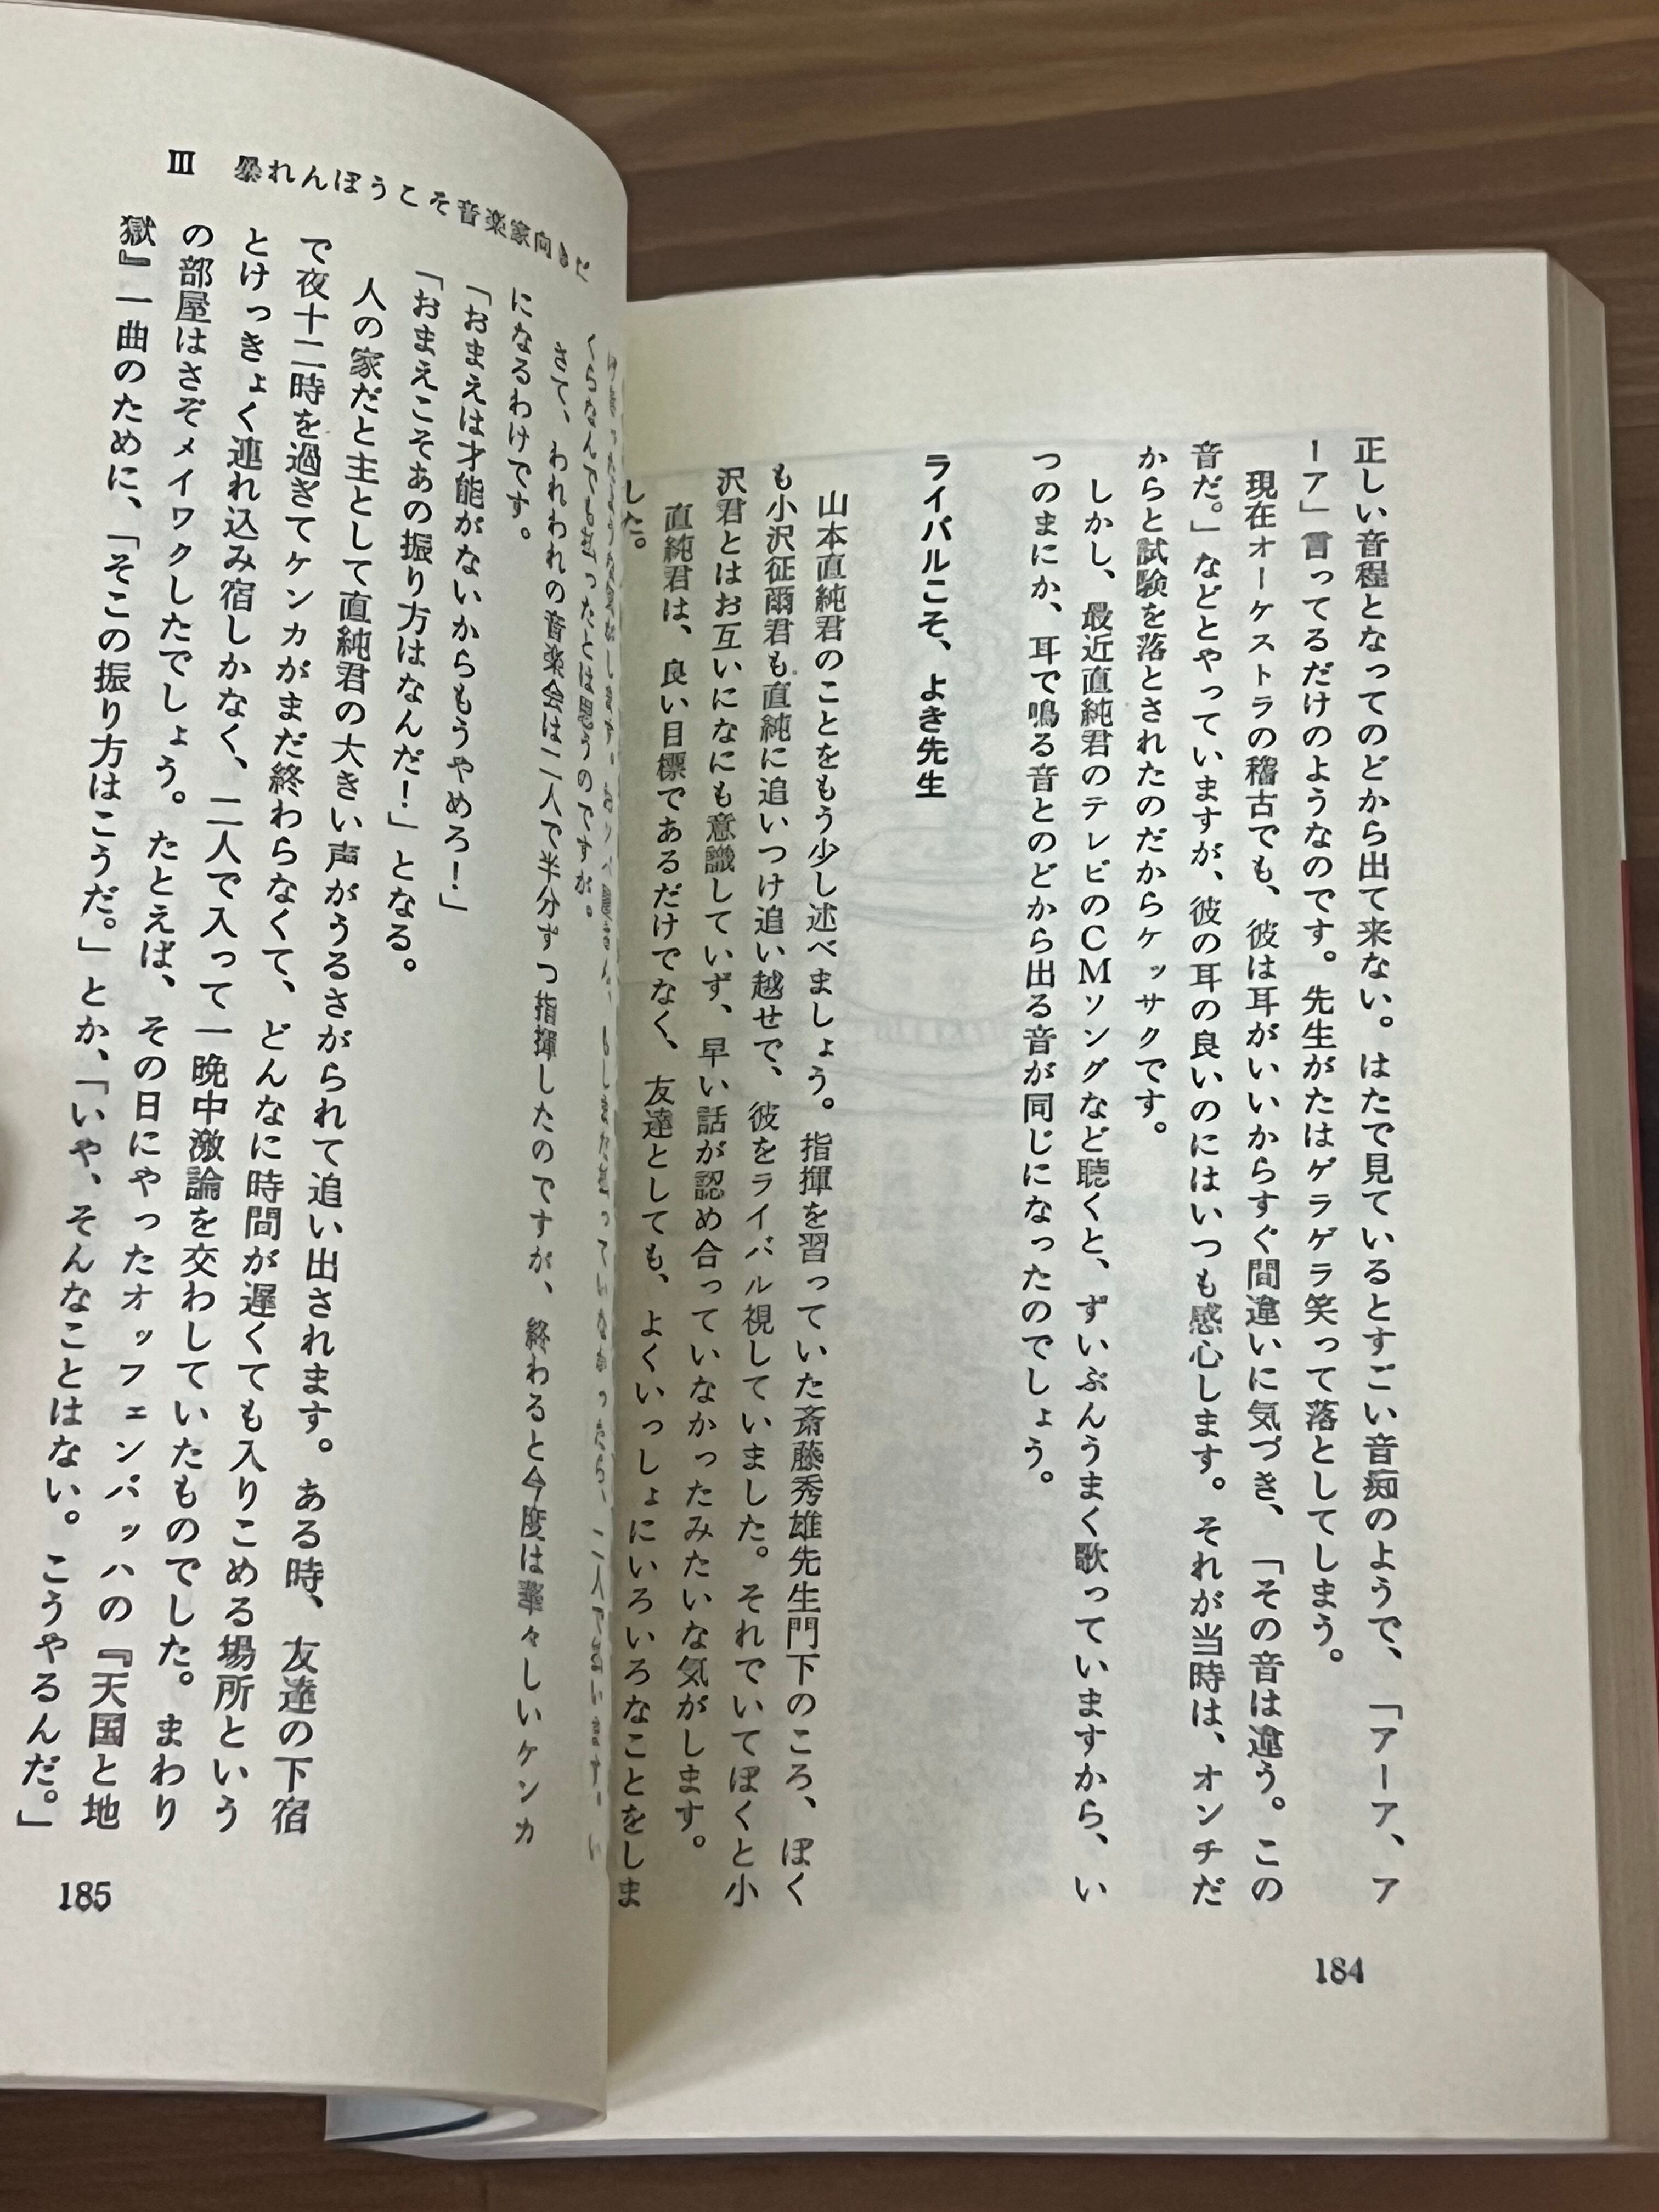 正しい音程となってのどから出て来ない。はたで見ているとすごい音痴のようで、「アーア、ア
ーア」言ってるだけのようなのです。先生がたはゲラゲラ笑って落としてしまう。
現在オーケストラの稽古でも、彼は耳がいいからすぐ間違いに気づき、「その音は違う。この
音だ。」などとやっていますが、彼の耳の良いのにはいつも感心します。それが当時は、オンチだ
からと試験を落とされたのだからケッサクです。
しかし、最近直純君のテレビのCMソングなど聴くと、ずいぶんうまく歌っていますから、い
つのまにか、耳で鳴る音とのどから出る音が同じになったのでしょう。
ライバルこそ、よき先生
山本直純君のことをもう少し述べましょう。指揮を習っていた斎藤秀雄先生門下のころ、ぼく
も小沢征爾君も直純に追いつけ追い越せで、彼をライバル視していました。それでいてぼくと小
沢君とはお互いになにも意識していず、早い話が認め合っていなかったみたいな気がします。
直純君は、良い目標であるだけでなく、友達としても、よくいっしょにいろいろなことをしま
した。
184
III 暴れんぼうこそ音楽家向きだ
くらなんでも振ったとは思うのですが。
さて、われわれの音楽会は二人で半分ずつ指揮したのですが、終わると今度は華々しいケンカ
になるわけです。
「おまえは才能がないからもうやめろ！」
「おまえこそあの振り方はなんだ！」となる。
人の家だと主として直純君の大きい声がうるさがられて追い出されます。ある時、友達の下宿
で夜十二時を過ぎてケンカがまだ終わらなくて、どんなに時間が遅くても入りこめる場所という
とけっきょく連れ込み宿しかなく、二人で入って一晩中激論を交わしていたものでした。まわり
の部屋はさぞメイワクしたでしょう。たとえば、その日にやったオッフェンバッハの『天国と地
獄』一曲のために、「そこの振り方はこうだ。」とか、「いや、そんなことはない。こうやるんだ。」
185